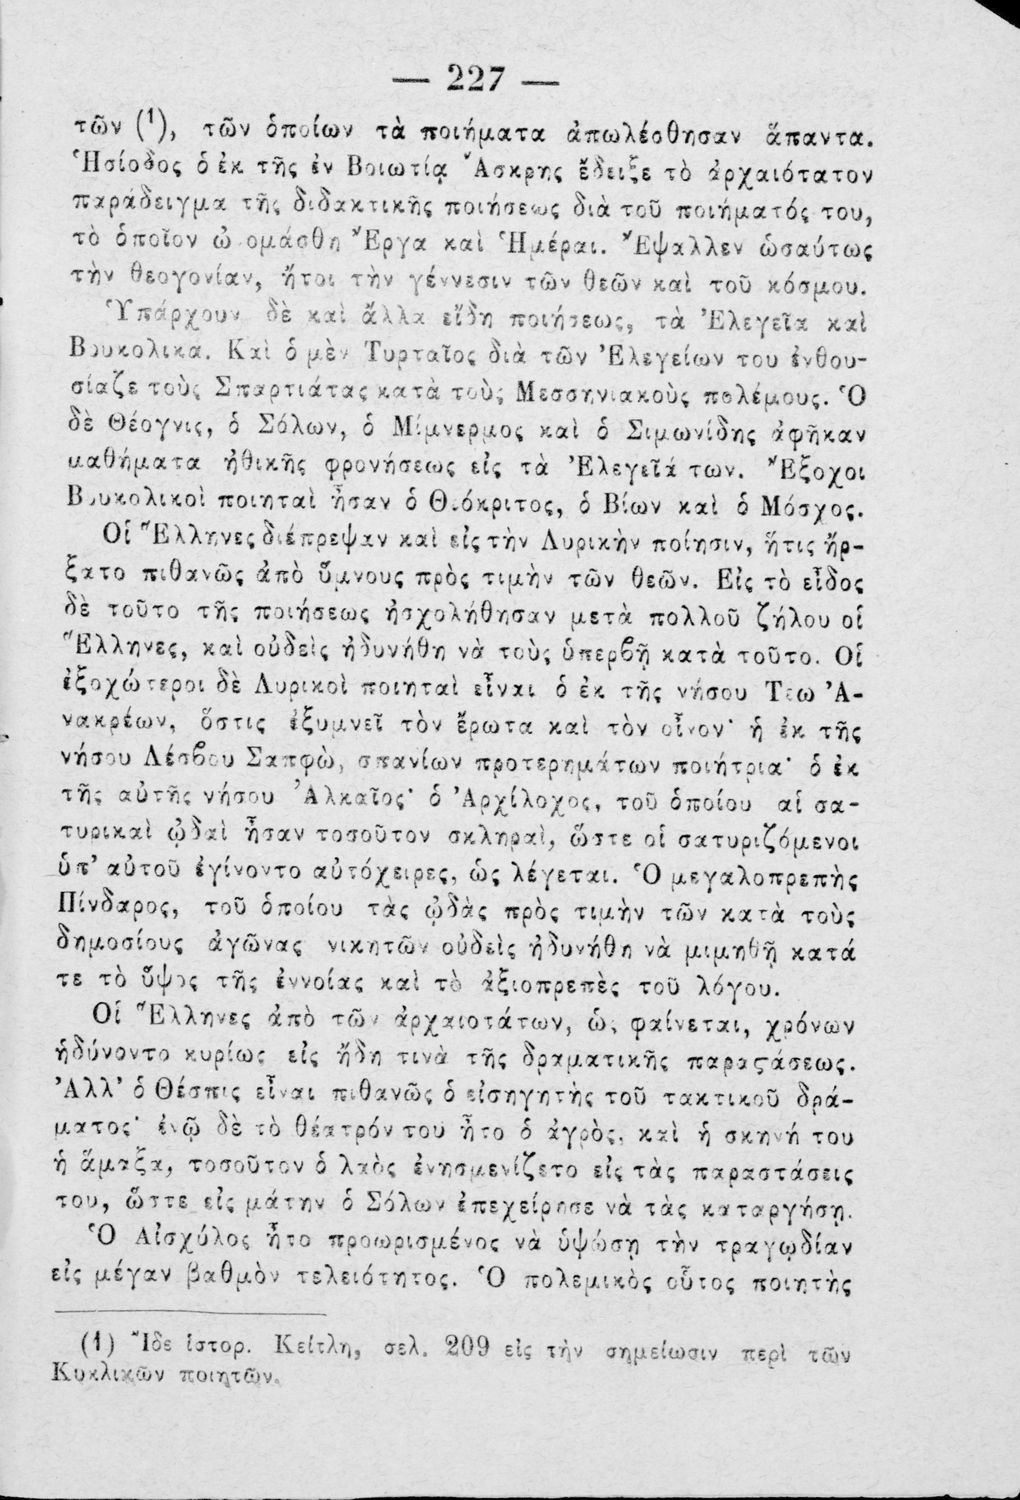 — 227 —
τῶν (1), τῶν ὁποίων τὰ ποιήματα ἀπωλέσθησαν ἅπαντα.
Ἡσίοδος ὁ ἐκ τῆς ἐν Βοιωτίᾳ Ἄσκρης ἔδειξε τὸ ἀρχαιότατον
παράδειγμα τῆς διδακτικῆς ποιήσεως διὰ τοῦ ποιήματός του,
τὸ ὁποῖον ὠνομάσθη Ἔργα καὶ Ἡμέραι. Ἔψαλλεν ὡσαύτως
τὴν θεογονίαν, ἤτοι τὴν γέννεσιν τῶν θεῶν καὶ τοῦ κόσμου.
Ὑπάρχουν δὲ καὶ ἄλλα εἴδη ποιήσεως, τὰ Ἐλεγεῖα καὶ
Βουκολικά. Καὶ ὁ μὲν Τυρταῖος διὰ τῶν Ἐλεγείων του ἐνθου-
σίαζε τοὺς Σπαρτιάτας κατὰ τοὺς Μεσσηνιακοὺς πολέμους. Ὁ
δὲ Θέογνις, ὁ Σόλων, ὁ Μίμνερμος καὶ ὁ Σιμωνίδης ἀφῆκαν
μαθήματα ἠθικῆς φρονήσεως εἰς τὰ Ἐλεγεῖά των. Ἔξοχοι
Βουκολικοὶ ποιηταὶ ἦσαν ὁ Θεόκριτος, ὁ Βίων καὶ ὁ Μόσχος.
Οἱ Ἕλληνες διέπρεψαν καὶ εἰς τὴν Λυρικὴν ποίησιν, ἥτις ἤρ-
ξατο πιθανῶς ἀπὸ ὕμνους πρὸς τιμὴν τῶν θεῶν. Εἰς τὸ εἶδος
δὲ τοῦτο τῆς ποιήσεως ἠσχολήθησαν μετὰ πολλοῦ ζήλου οἱ
Ἕλληνες, καὶ οὐδεὶς ἠδυνήθη νὰ τοὺς ὑπερβῇ κατὰ τοῦτο. Οἱ
ἐξοχώτεροι δὲ Λυρικοὶ ποιηταὶ εἶναι ὁ ἐκ τῆς νήσου Τεω Ἀ-
νακρέων, ὅστις ἐξυμνεῖ τὸν ἔρωτα καὶ τὸν οἶνον· ἡ ἐκ τῆς
νήσου Λέσβου Σαπφὼ, σπανίων προτερημάτων ποιήτρια· ὁ ἐκ
τῆς αὐτῆς νήσου Ἀλκαῖος· ὁ Ἀρχίλοχος, τοῦ ὁποίου αἱ σα-
τυρικαὶ ᾠδαὶ ἦσαν τοσοῦτον σκληραὶ, ὥστε οἱ σατυριζόμενοι
ὑπ' αὐτοῦ ἐγίνοντο αὐτόχειρες, ὡς λέγεται. Ὁ μεγαλοπρεπὴς
Πίνδαρος, τοῦ ὁποίου τὰς ᾠδὰς πρὸς τιμὴν τῶν κατὰ τοὺς
δημοσίους ἀγῶνας νικητῶν οὐδεὶς ἠδυνήθη νὰ μιμηθῇ κατά
τε τὸ ὕψος τῆς ἐννοίας καὶ τὸ ἀξιοπρεπὲς τοῦ λόγου.
Οἱ Ἕλληνες ἀπὸ τῶν ἀρχαιοτάτων, ὡς φαίνεται, χρόνων
ἡδύνοντο κυρίως εἰς ἤδη τινὰ τῆς δραματικῆς παραϛάσεως.
Ἀλλ' ὁ Θέσπις εἶναι πιθανῶς ὁ εἰσηγητὴς τοῦ τακτικοῦ δρά-
ματος· ἐνῷ δὲ τὸ θέατρόν του ἦτο ὁ ἀγρὸς, καὶ ἡ σκηνή του
ἡ ἅμαξα, τοσοῦτον ὁ λαὸς ἐνησμενίζετο εἰς τὰς παραστάσεις
του, ὥστε εἰς μάτην ὁ Σόλων ἐπεχείρησε νὰ τὰς καταργήσῃ.
Ὁ Αἰσχύλος ἦτο προωρισμένος νὰ ὑψώσῃ τὴν τραγῳδίαν
εἰς μέγαν βαθμὸν τελειότητος. Ὁ πολεμικὸς οὗτος ποιητὴς
(1) Ἴδε ἱστορ. Κείτλη, σελ. 209 εἰς τὴν σημείωσιν περὶ τῶν
Κυκλικῶν ποιητῶν.